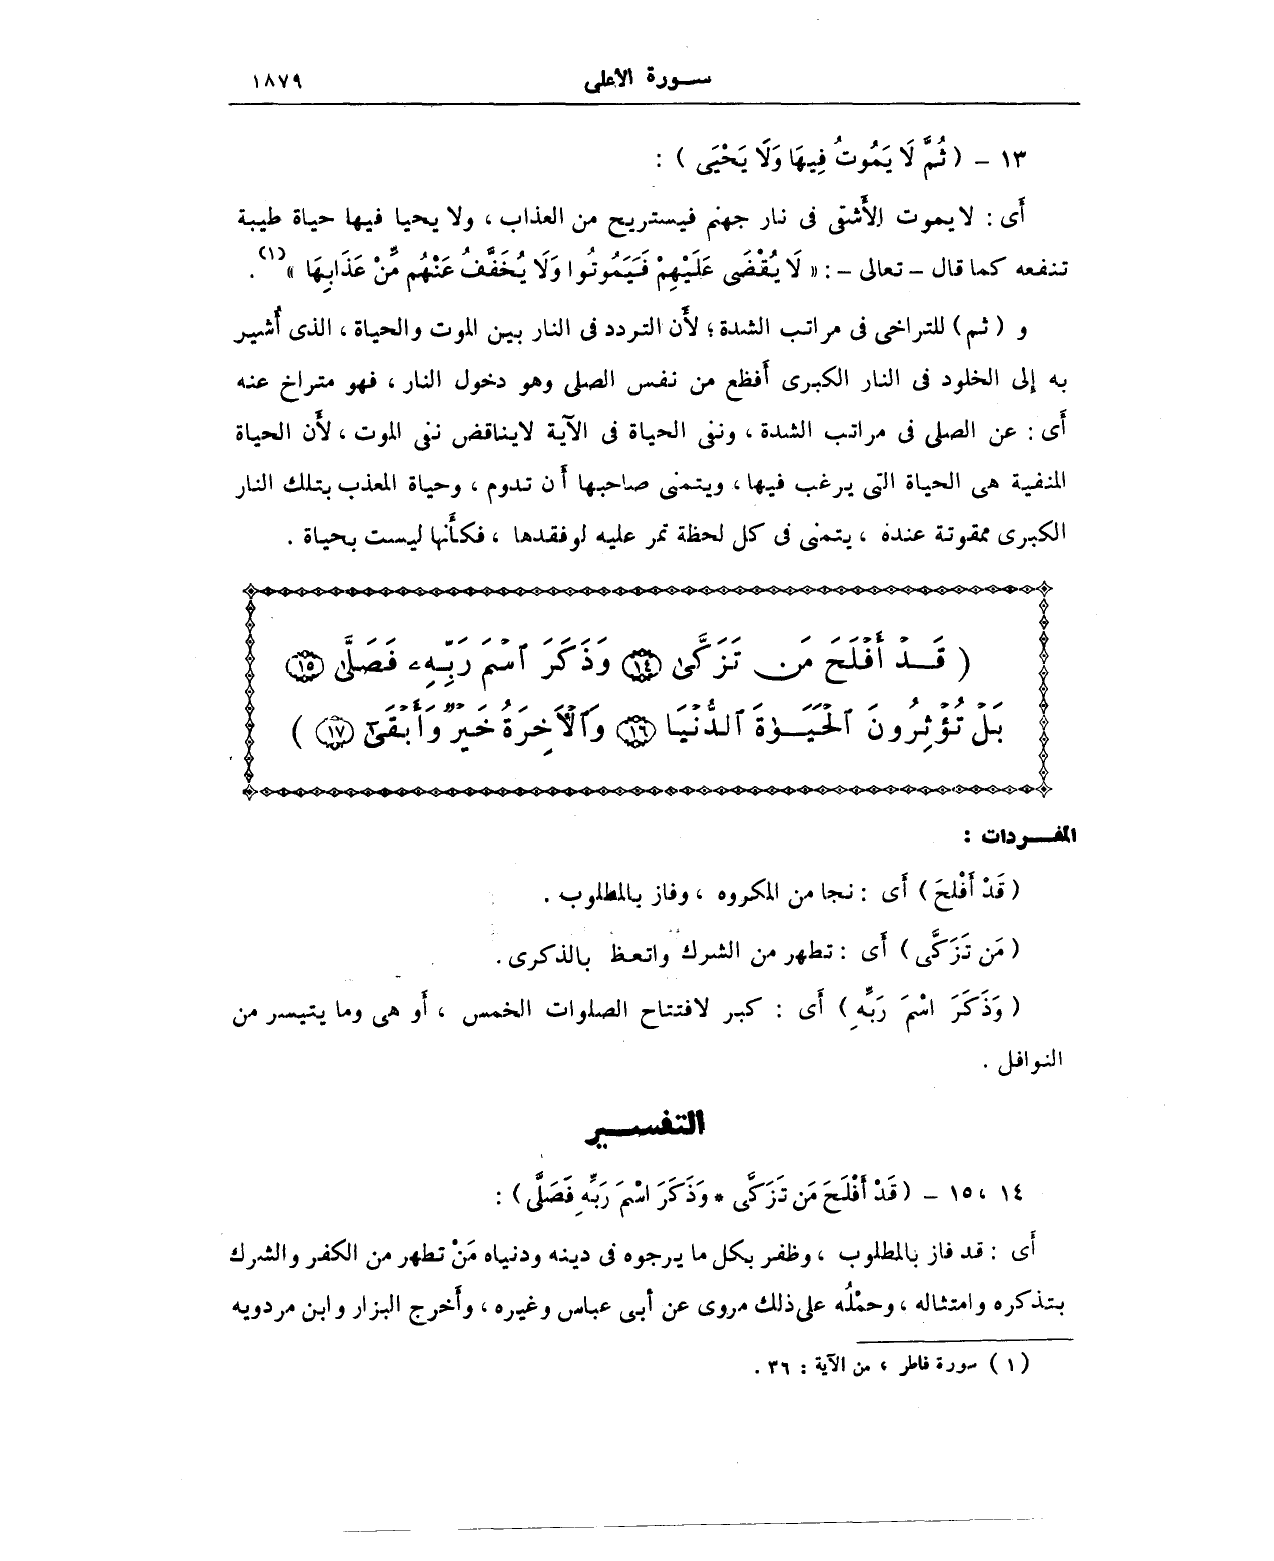 سورة الأعلى ١٨٧٩
١٣ – ( ثُمَّ لَا يَمُوتُ فِيهَا وَلَا يَحْيَى ) :
أَى : لا يموت الأَشقى فى نار جهنم فيستريح من العذاب ، ولا يحيا فيها حياة طيبة
تنفعه كما قال – تعالى – : « لَا يُقْضَى عَلَيْهِمْ فَيَمُوتُوا وَلَا يُخَفَّفُ عَنْهُم مِّنْ عَذَابِهَا »(١) .
و ( ثم ) للتراخى فى مراتب الشدة ؛ لأَن التردد فى النار بين الموت والحياة ، الذى أُشير
به إلى الخلود فى النار الكبرى أَفظع من نفس الصلى وهو دخول النار ، فهو متراخ عنه
أَى : عن الصلى فى مراتب الشدة ، ونفى الحياة فى الآية لايناقض نفى الموت ، لأَن الحياة
المنفية هى الحياة التى يرغب فيها ، ويتمنى صاحبها أَن تدوم ، وحياة المعذب بتلك النار
الكبرى ممقوتة عنده ، يتمنى فى كل لحظة تمر عليه لو فقدها ، فكأَنها ليست بحياة .
( قَدْ أَفْلَحَ مَن تَزَكَّىٰ ١٤ وَذَكَرَ ٱسْمَ رَبِّهِۦ فَصَلَّىٰ ١٥
بَلْ تُؤْثِرُونَ ٱلْحَيَوٰةَ ٱلدُّنْيَا ١٦ وَٱلْآخِرَةُ خَيْرٌ وَأَبْقَىٰٓ ١٧ )
المفـردات :
( قَدْ أَفْلَحَ ) أَى : نجا من المكروه ، وفاز بالمطلوب .
( مَن تَزَكَّى ) أَى : تطهر من الشرك واتعظ بالذكرى .
( وَذَكَرَ اسْمَ رَبِّهِ ) أَى : كبر لافتتاح الصلوات الخمس ، أَو هى وما يتيسر من
النوافل .
التفسير
١٤ ، ١٥ – ( قَدْ أَفْلَحَ مَن تَزَكَّى * وَذَكَرَ اسْمَ رَبِّهِ فَصَلَّى ) :
أَى : قد فاز بالمطلوب ، وظفر بكل ما يرجوه فى دينه ودنياه مَنْ تطهر من الكفر والشرك
بتذكره وامتثاله ، وحمْلُه على ذلك مروى عن أبى عباس وغيره ، وأَخرج البزار وابن مردويه
( ١ ) سورة فاطر ، من الآية : ٣٦ .